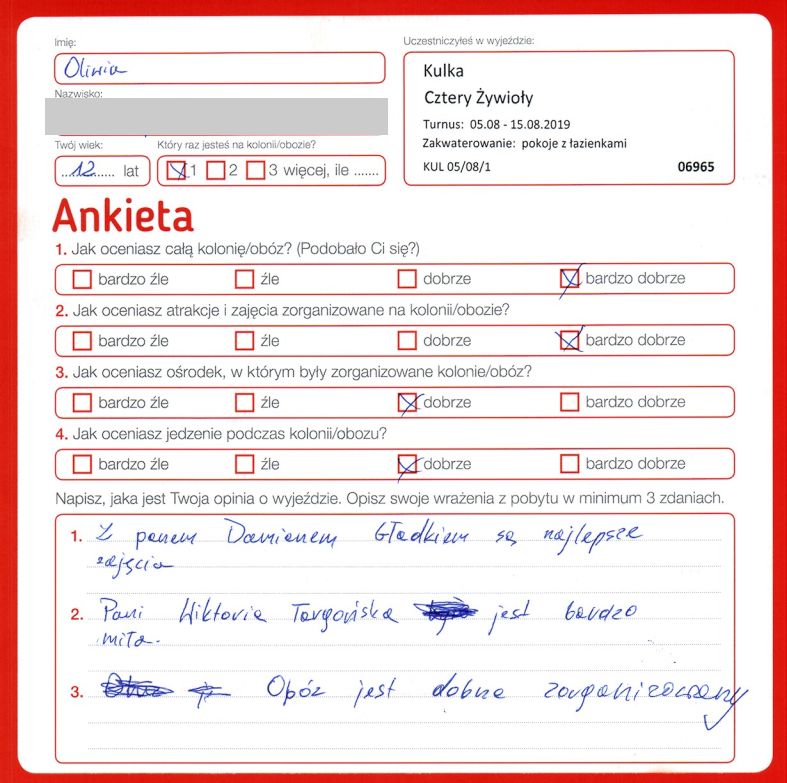 Imię:
Oliwia
Nazwisko:
Twój wiek:
12 lat
Który raz jesteś na kolonii/obozie?
1 2 3 więcej, ile .......
Uczestniczyłeś w wyjeździe:
Kulka
Cztery Żywioły
Turnus: 05.08 - 15.08.2019
Zakwaterowanie: pokoje z łazienkami
KUL 05/08/1 06965
Ankieta
1. Jak oceniasz całą kolonię/obóz? (Podobało Ci się?)
bardzo źle źle dobrze bardzo dobrze
2. Jak oceniasz atrakcje i zajęcia zorganizowane na kolonii/obozie?
bardzo źle źle dobrze bardzo dobrze
3. Jak oceniasz ośrodek, w którym były zorganizowane kolonie/obóz?
bardzo źle źle dobrze bardzo dobrze
4. Jak oceniasz jedzenie podczas kolonii/obozu?
bardzo źle źle dobrze bardzo dobrze
Napisz, jaka jest Twoja opinia o wyjeździe. Opisz swoje wrażenia z pobytu w minimum 3 zdaniach.
1. Z panem Damianem Gładkiem są najlepsze
zajęcia
2. Pani Wiktoria Targońska jest bardzo
miła.
3. Opóz jest dobrze zorganizowany